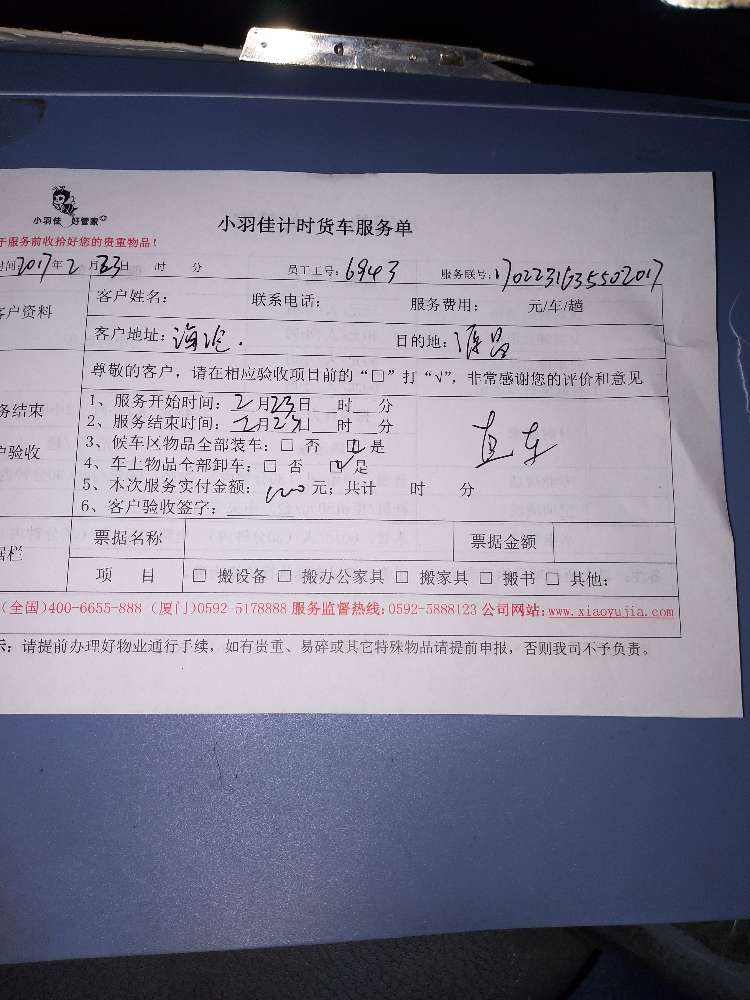 小羽佳 好管家
小羽佳计时货车服务单
于服务前收拾好您的贵重物品!
时间2017年2月23日 时 分 员工工号:6943 服务联号:
客户资料 客户姓名: 联系电话: 服务费用: 元/车/趟
客户地址: 海沧. 目的地:
尊敬的客户，请在相应验收项目前的“□”打“√”，非常感谢您的评价和意见
务结束
户验收
1、服务开始时间:2月23日 时 分
2、服务结束时间:2月23日 时 分
3、候车区物品全部装车:□ 否 ☑是
4、车上物品全部卸车:□ 否 ☑是
5、本次服务实付金额: 元; 共计 时 分
6、客户验收签字:
据栏 票据名称 票据金额
项 目 □ 搬设备 □ 搬办公家具 □ 搬家具 □ 搬书 □ 其他:
(全国)400-6655-888 (厦门)0592 5178888 服务监督热线:0592-5888123 公司网站:www.xiaoyujia.com
示: 请提前办理好物业通行手续，如有贵重、易碎或其它特殊物品请提前申报，否则我司不予负责。